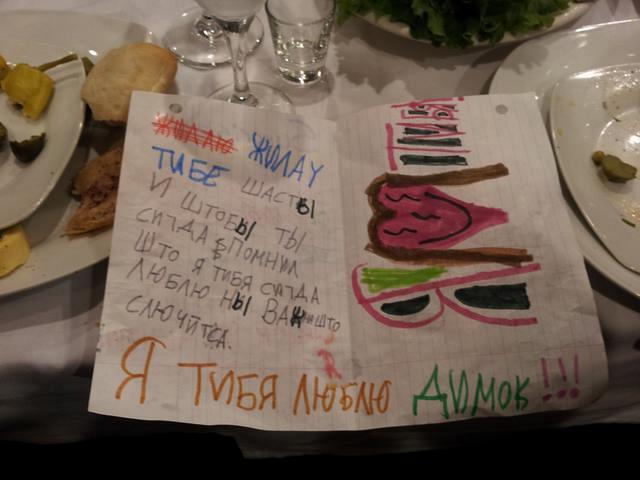 ЖИЛАЮ ЖИЛАУ
ТИБЕ ШАСТЫ
И ШТОБЫ ТЫ
СИГДА ВПОМНИЛ
ШТО Я ТИБЯ СИГДА
ЛЮБЛЮ НЫ
СЛЮЧИТСА.
Я ТИБЯ
Я ТИБЯ ЛЮБЛЮ ДИМОК!!!